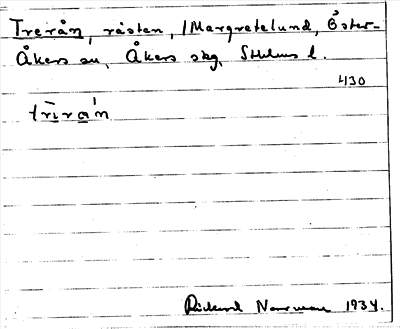 Trerån, råsten, /Margretelund, Öster-
Åkers sn, Åkers skg, Sthlms l.
430
trìrá̀n
Rickard 1934.